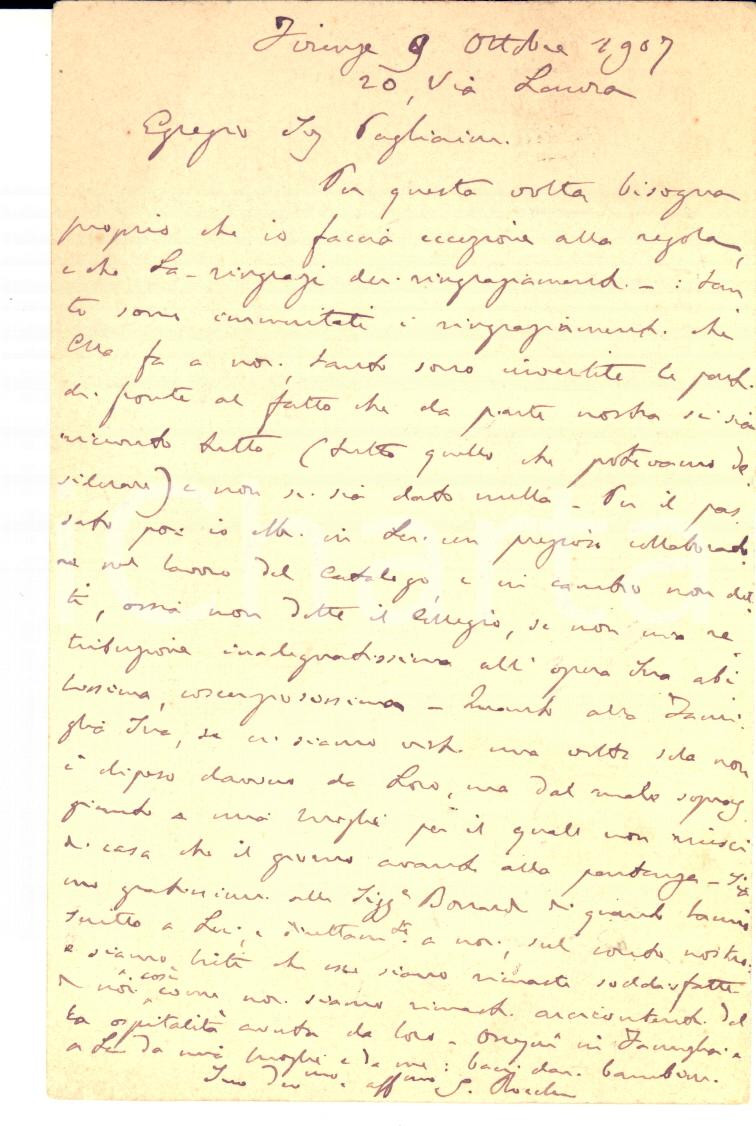 Firenze 9 Ottobre 1907
20, Via Laura
Egregio Sig Pagliaini.
Per questa volta bisogna
proprio che io faccia eccezione alla regola,
e che La ringrazi dei ringraziamenti - : tan
to sono immeritati i ringraziamenti che
Ella fa a noi, tanto sono invertite le parti
di fronte al fatto che da parte nostra si sia
ricevuto tutto (tutto quello che potevamo de
siderare) e non si sia dato nulla - Per il pas
sato poi io ebbi in Lei un prezioso collaborato
re nel lavoro del Catalogo, e in cambio non det
ti, ossia non dette il Collegio, se non una re
tribuzione inadeguatissima all' opera Sua abi
lissima, coscenziosissima - Quanto alla Fami
glia Sua, se ci siamo visti una volta sola non
è dipeso davvero da Loro, ma dal male soprag
giunto a mia moglie per il quale non uscì
di casa che il giorno avanti alla partenza - Sia
mo gratissimi alle Sigg.e Bonardi di quanto hanno
scritto a Lei, e direttam.te a noi, sul conto nostro:
e siamo lieti che esse siano rimaste soddisfatte
di noi così come noi siamo rimasti arcicontenti del
la ospitalità avuta da loro - Ossequi in Famiglia e
a Lei da mia moglie e da me: baci dai bambini.
Suo dev.mo e aff.mo S. Rocchi
Charta